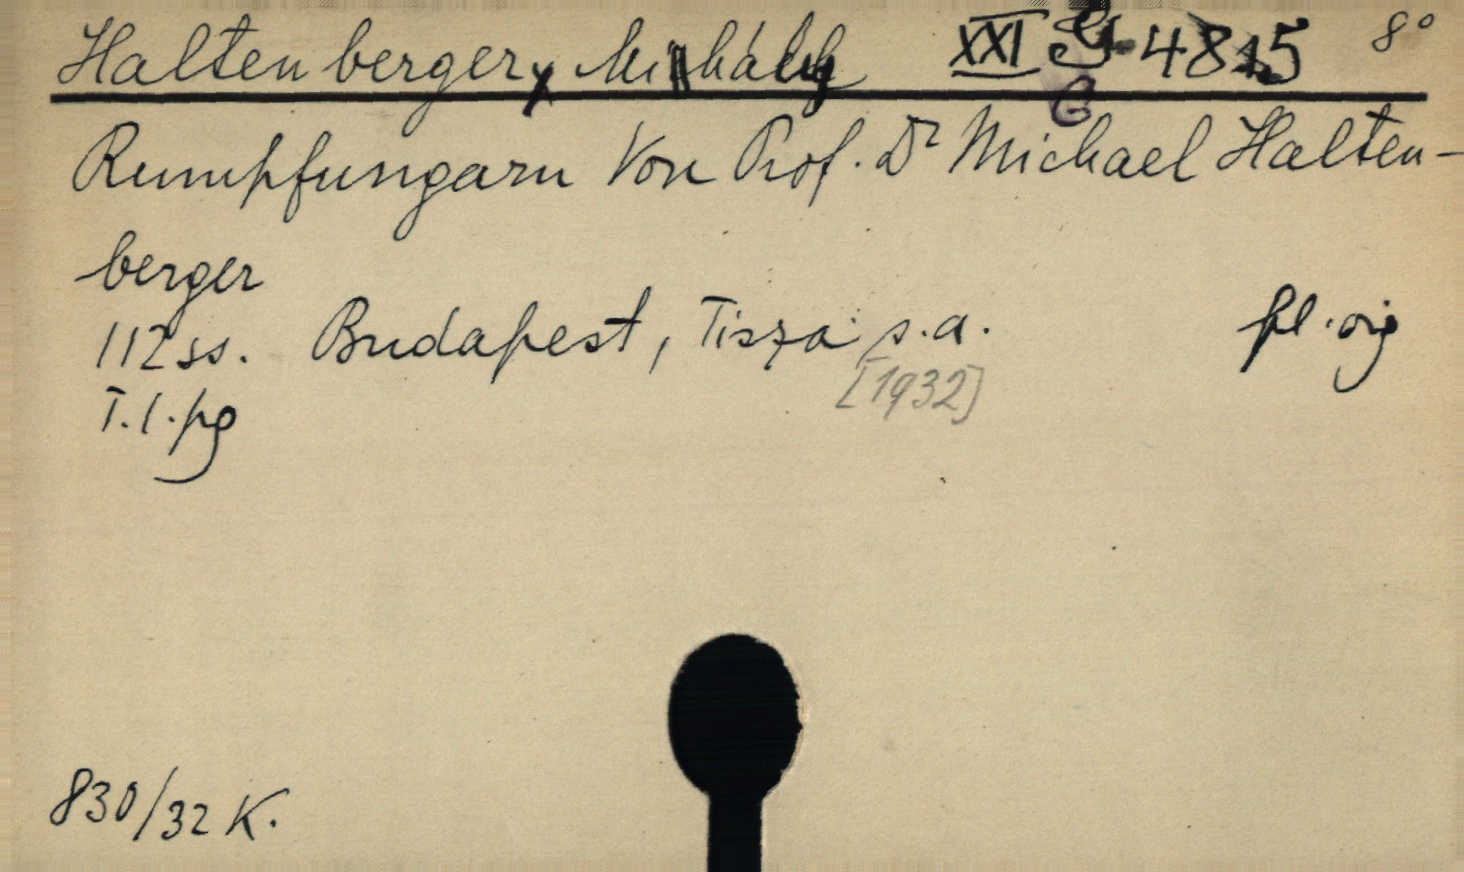 Haltenberger, Mihály XXI G 4815 8°
G
Rumpfungarn Von Prof. Dr Michael Halten-
berger
112 ss. Budapest, Tisza s.a. fl. orig
[1932]
T. l. pg
830/32 K.